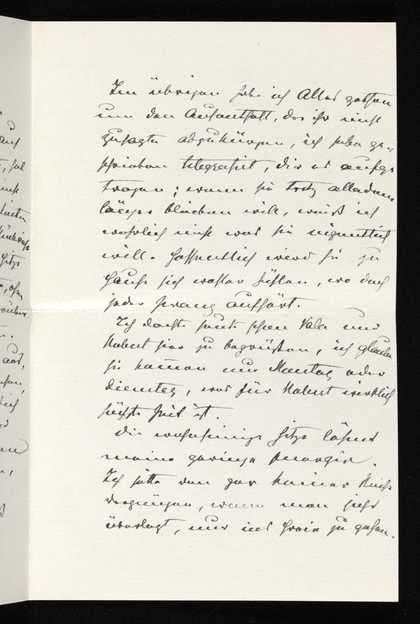 Im übrigen habe ich Alles gethan
um den Aufenthalt, der ihr nicht
zusagte abzukürzen, ich habe ge-
schrieben telegrafirt, dir es aufge-
tragen; wenn sie trotz alledem
länger bleiben will, weiß ich
wahrlich nicht was sie eigentlich
will. Hoffentlich wird sie zu
Hause sich wohler fühlen, wo doch
jeder Zwang aufhört.
Ich dachte heute schon und
Robert hier zu begrüßen, ich glaube
sie kommen nur Montag oder
Dienstag, was für Robert wirklich
höchste Zeit ist.
Die wahnsinnige Hitze lähmt
meine geringe Energie.
Ich hätte von gar keiner
, wenn man sichs
überlegt, nur ins Freie zu gehen.